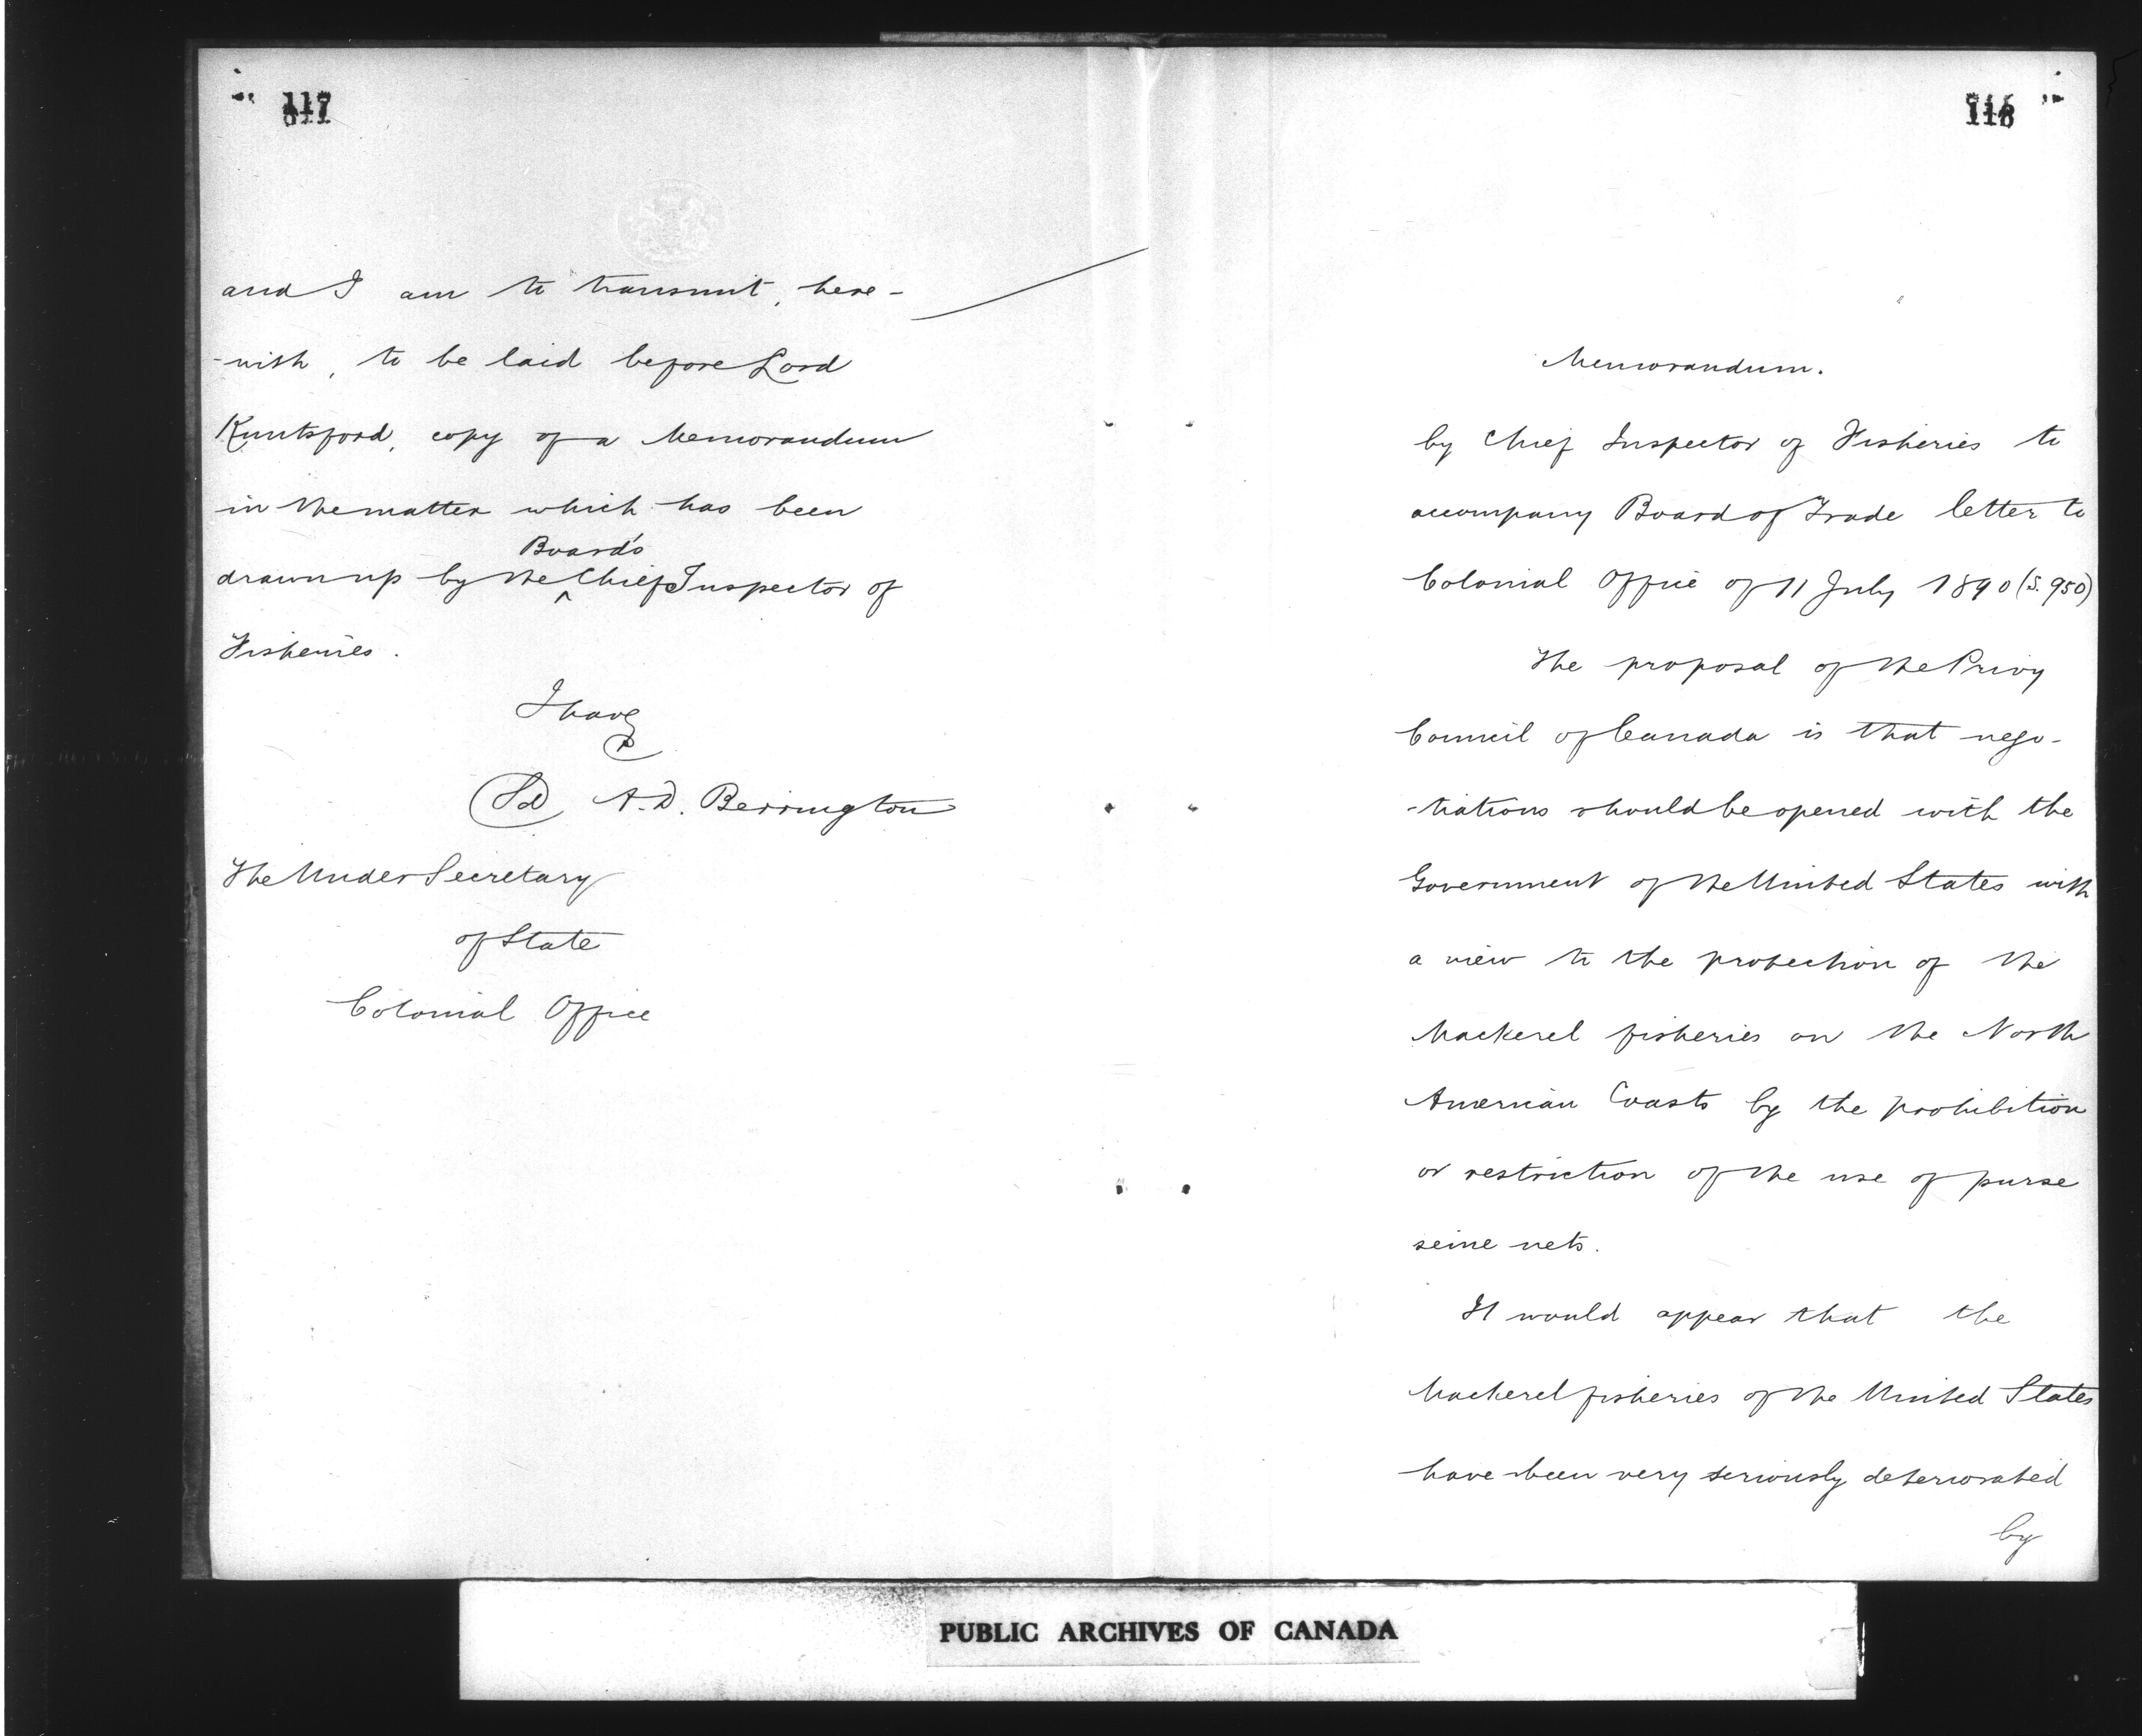 117
and I am to transmit, here-
-with, to be laid before Lord
Knutsford, copy of a Memorandum
in the matter which has been
Board's
drawn up by the ^ Chief Inspector of
Fisheries.
I have
(Sd) A.D. Berrington
The Under Secretary
of State
Colonial Office
118
Memorandum.
by Chief Inspector of Fisheries to
accompany Board of Trade letter to
Colonial Office of 11 July 1890 (S. 950)
The proposal of the Privy
Council of Canada is that nego-
-tiations should be opened with the
Government of the United States with
a view to the protection of the
Mackerel fisheries on the North
American Coasts by the prohibition
or restriction of the use of purse
seine nets.
It would appear that the
Mackerel fisheries of the United States
have been very seriously deteriorated
by
PUBLIC ARCHIVES OF CANADA